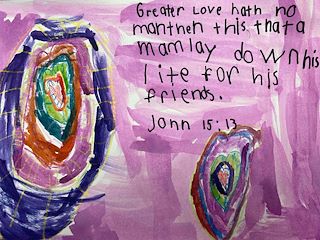 Greater Love hath no
manthen this that a
mam lay down his
lite for his
friends.
John 15:13